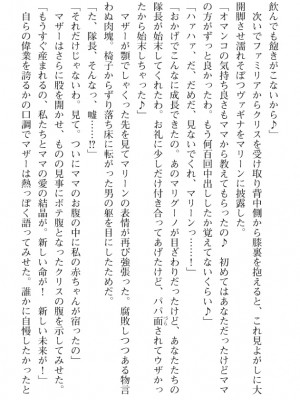 飲んでも飽きがこないから♪」
次いでファミリアからクリスを受け取り背中側から膝裏を抱えると、これ見よがしに大
開脚させ濡れそぼつヴァギナをマリーンに披露した。
「オマンコの気持ち良さもママから教えてもらったの♪　初めてはあなただったけどママ
の方がずっと良かったわ。もう何百回中出ししたか覚えてないくらい♪」
「ハァハァ、だ、だめだ、見ないでくれ、マリーン……っ」
「おかげでこんなに成長できたの。あのマリグーノが目ざわりだったけど、あなたたちの
隊長が始末してくれたわ。お礼に少しだけ付き合ってあげたけど、パパ面されてウザかっ
たから始末しちゃった♪」
マザーが顎でしゃくった先を見てマリーンの表情が再び強張った。腐敗しつつある物言
わぬ肉塊、椅子からずり落ち床に転がった男の躯を目にしたためだ。
「た、隊長、そんなっ、嘘……!?」
「それだけじゃないわ、見て。ついにママのお腹の中に私の赤ちゃんが宿ったの」
マザーはさらに股を開かせ、ものの見事にボテ腹となったクリスの腹を示してみせた。
「もうすぐ産まれるの、私たちとママの愛の結晶が。新しい命が！　新しい未来が！」
自らの偉業を誇るかの口調でマザーは熱っぽく語ってみせた。誰かに自慢したかったと